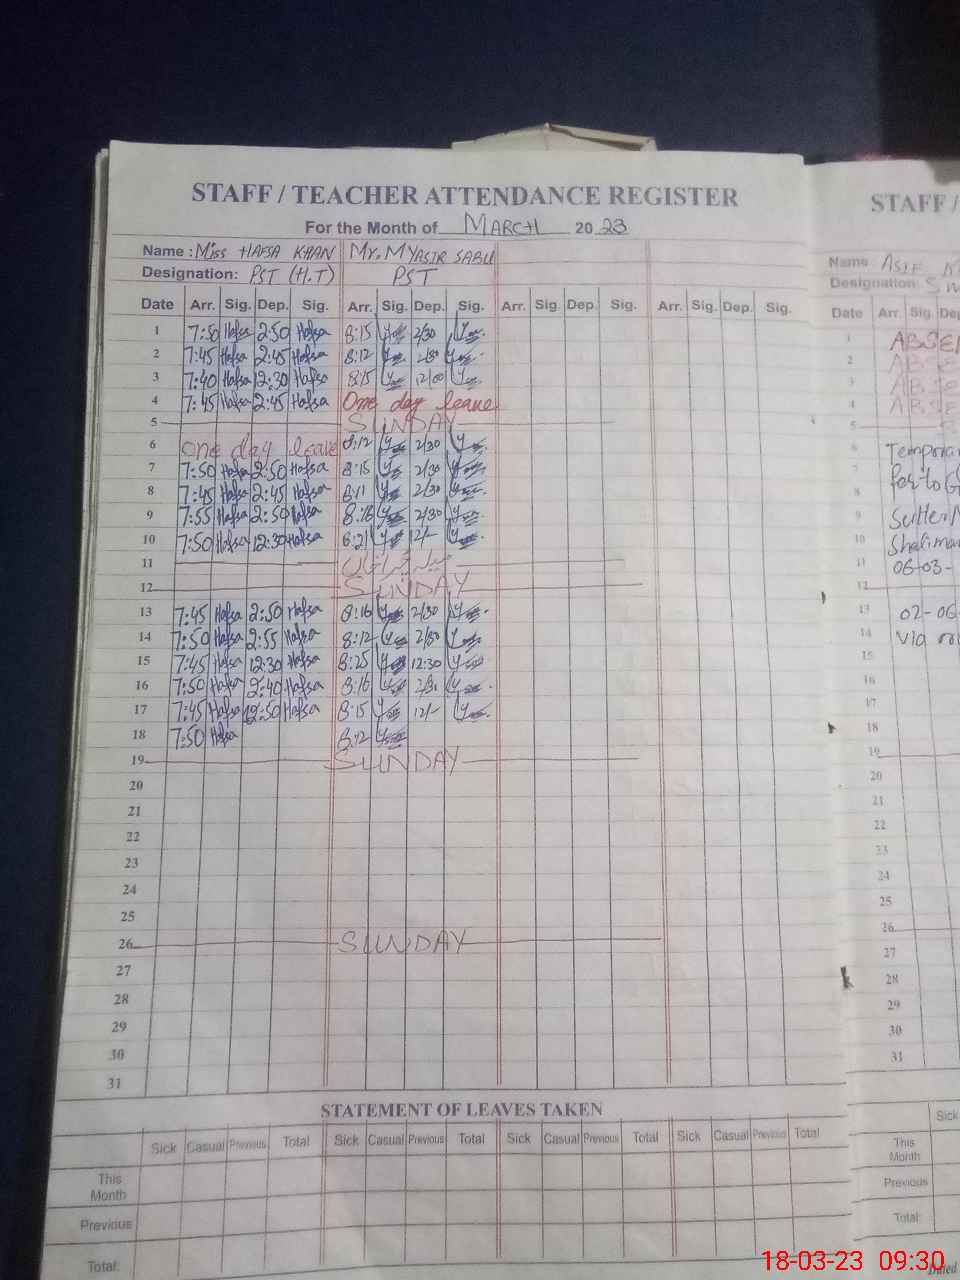 STAFF / TEACHER ATTENDANCE REGISTER
For the Month of MARCH 2023
Name : Miss HAFSA KHAN Mr. M YASIR SABU
Designation: PST (H.T) PST
Date Arr. Sig. Dep. Sig. Arr. Sig. Dep. Sig. Arr. Sig. Dep. Sig. Arr. Sig. Dep. Sig.
1 7:50 Hafsa 2:50 Hafsa 8:15 2/30
2 7:45 Hafsa 2:45 Hafsa 8:12 2/30
3 7:40 Hafsa 12:30 Hafsa 8:15 12/00
4 7:45 Hafsa 2:45 Hafsa One day leave
5 SUNDAY
6 One day leave 8:12 2/30
7 7:50 Hafsa 2:50 Hafsa 8:15 2/30
8 7:45 Hafsa 2:45 Hafsa 8:11 2/30
9 7:55 Hafsa 2:50 Hafsa 8:18 2/30
10 7:50 Hafsa 12:30 Hafsa 8:21 12/-
11
12 SUNDAY
13 7:45 Hafsa 2:50 Hafsa 8:16 2/30
14 7:50 Hafsa 2:55 Hafsa 8:12 2/30
15 7:45 Hafsa 12:30 Hafsa 8:25 12:30
16 7:50 Hafsa 2:40 Hafsa 8:10 2/30
17 7:45 Hafsa 12:50 Hafsa 8:15 12/-
18 7:50 Hafsa 8:12
19 SUNDAY
20
21
22
23
24
25
26 SUNDAY
27
28
29
30
31
STATEMENT OF LEAVES TAKEN
Sick Casual Previous Total Sick Casual Previous Total Sick Casual Previous Total Sick Casual Previous Total
This
Month
Previous
Total:
STAFF /
Name ASIF
Designation
Date Arr. Sig. Dep
1 ABSE
2 ABSE
3 ABSE
4 ABSE
5
6 Temporar
7
8
9
10 Shalimar
11 06-03-
12
13 02-06
14 via
15
16
17
18
19
20
21
22
23
24
25
26
27
28
29
30
31
Sick
This
Month
Previous
Total:
Dated
18-03-23 09:30